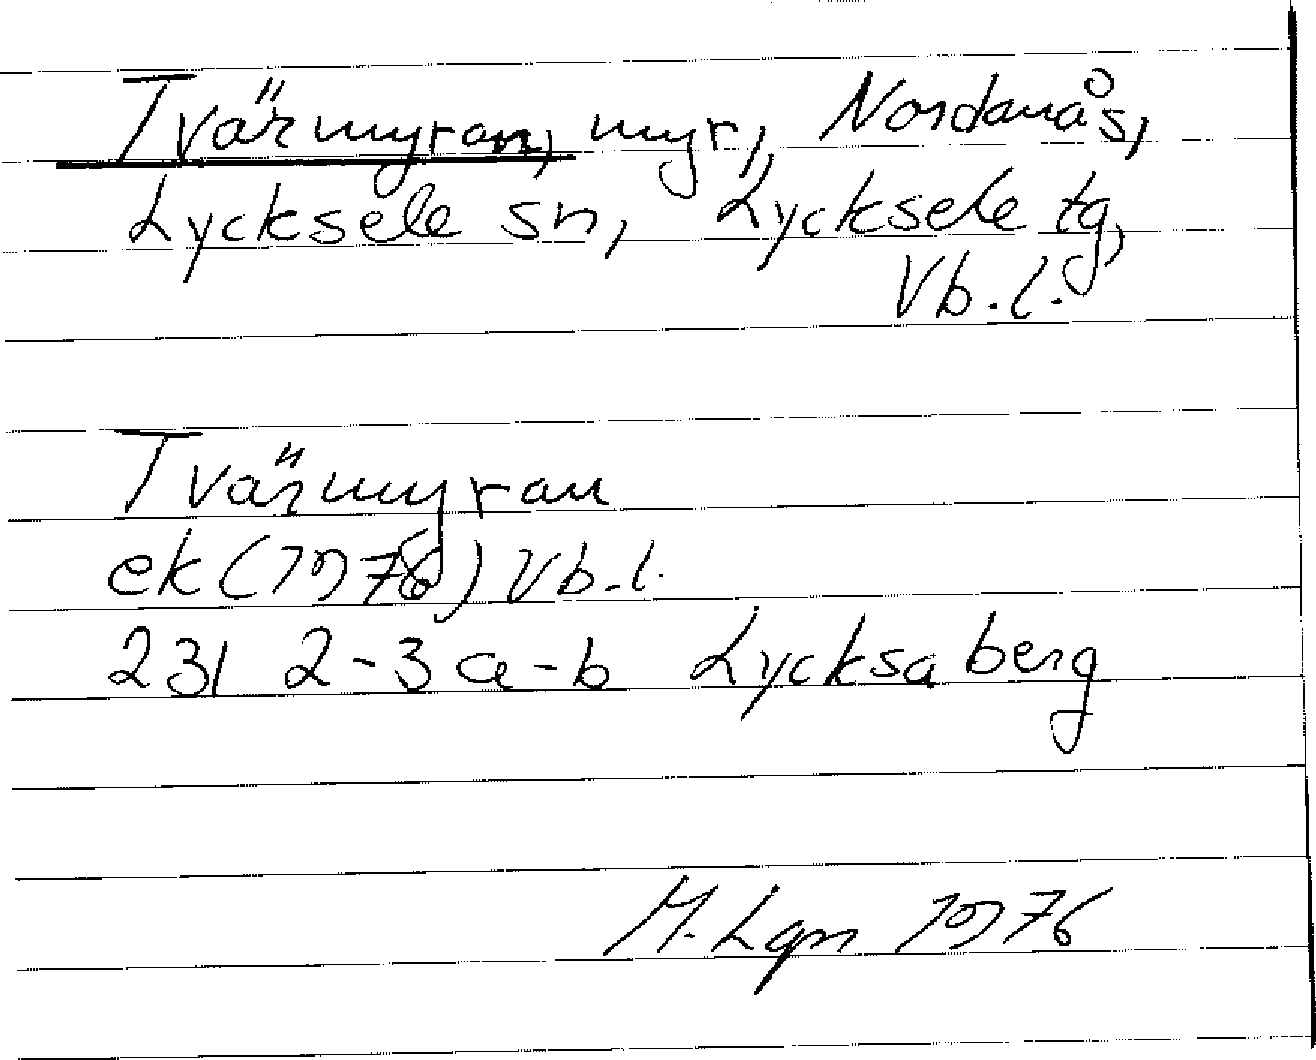 Tvärmyran, myr, Nordanås,
Lycksele sn, Lycksele tg,
Vb.l.
Tvärmyran
ek (1976) Vb.l.
23I 2-3 a-b Lycksaberg
M. Lgn 1976